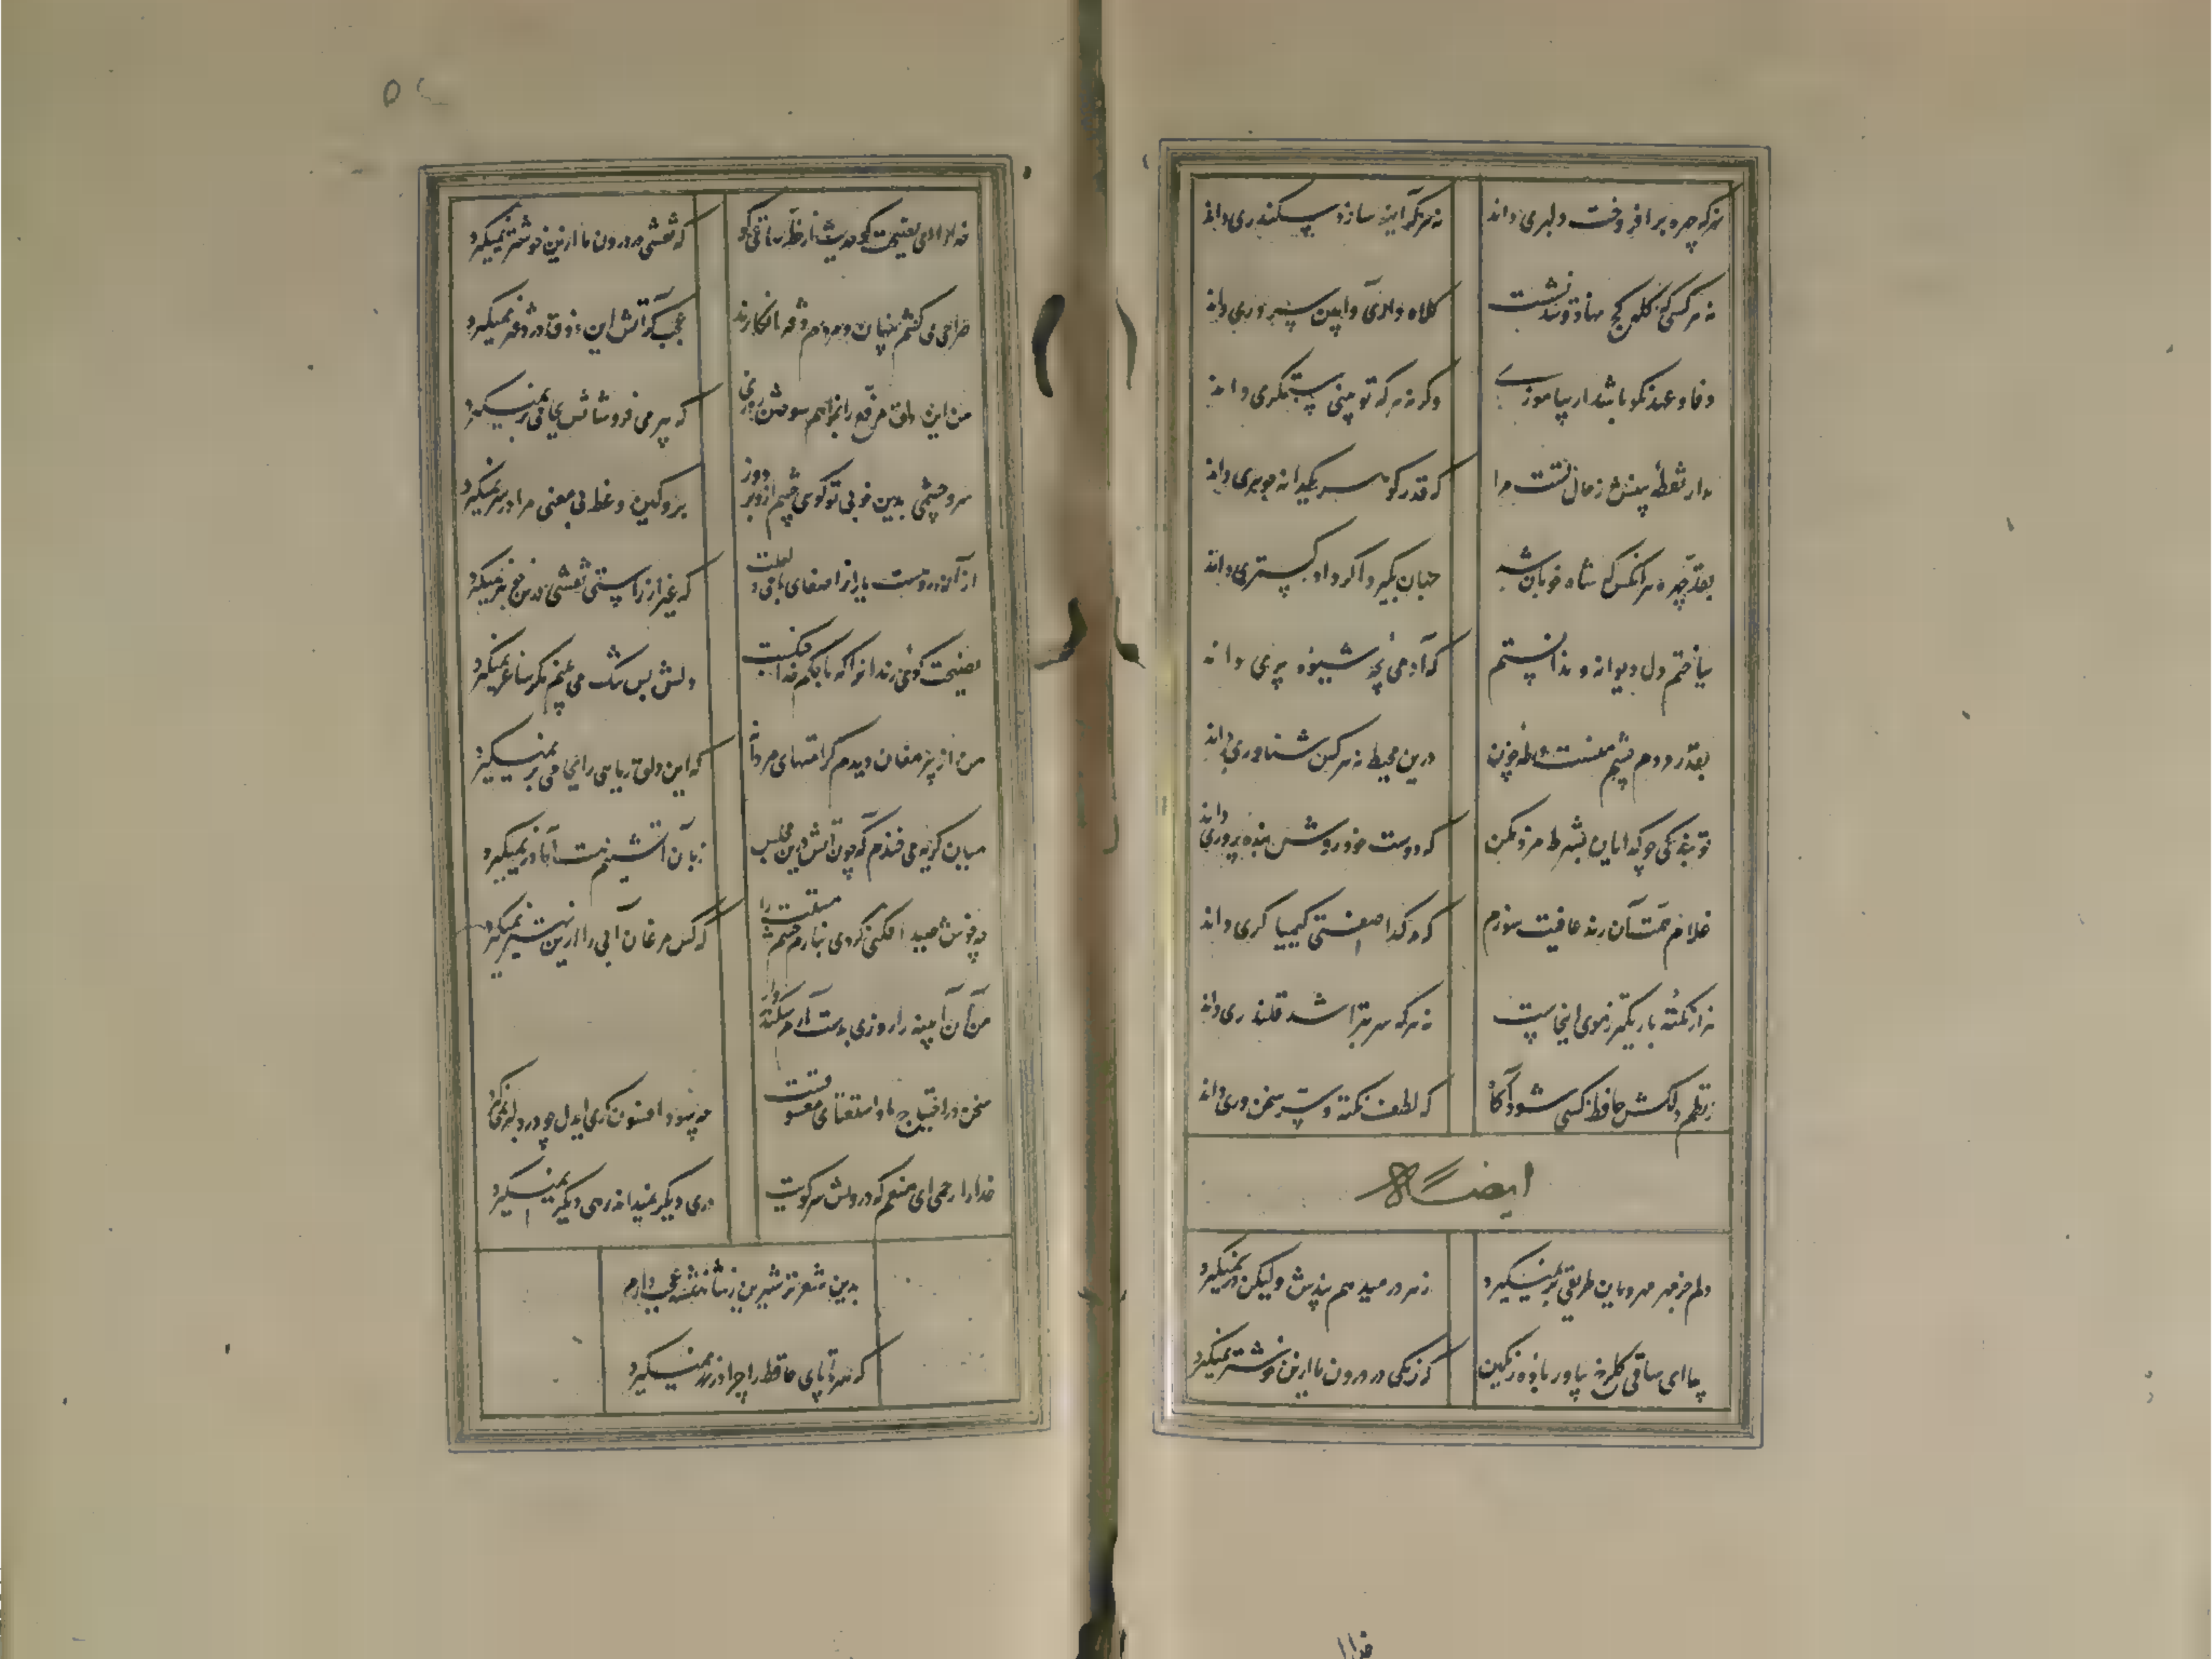 نه هر که چهره برافروخت دلبری داند
نه هر که آینه سازد سکندری داند
نه هر کسی که کله کج نهاد و تند نشست
کلاه داری و آیین سروری داند
وفا و عهد نکو باشد ار بیاموزی
وگرنه هر که تو بینی ستمگری داند
مدار نقطه بینش ز خال تست مرا
که قدر گوهر یکدانه جوهری داند
بقد و چهره هر آنکس که شاه خوبان شد
جهان بگیرد اگر دادگستری داند
بباختم دل دیوانه و ندانستم
که آدمی بچه شیوه پری داند
درین محیط نه هر کس شناوری داند
تو بندگی چو گدایان بشرط مزد مکن
که دوست خود روش بنده پروری داند
غلام همت آن رند عافیت سوزم
که در گدا صفتی کیمیاگری داند
هزار نکته باریکتر ز موی اینجاست
نه هر که سر بتراشد قلندری داند
ز نظم دلکش حافظ کسی شود آگاه
که لطف نکته و سر سخن وری داند
ایضا
دلم جز مهر مه رویان طریقی بر نمیگیرد
ز هر در میدهم پندش ولیکن در نمیگیرد
بیا ای ساقی گلرخ بیاور باده رنگین
که رنگی در درون ما ازین خوشتر نمیگیرد
خدارا
خدارا ای نصیحت گو حدیث از خط ساقی گو
که نقشی در درون ما ازین خوشتر نمیگیرد
صراحی می کشم پنهان و مردم دفتر انگارند
عجب گر آتش این زرق در دفتر نمیگیرد
من این دلق مرقع را بخواهم سوختن روزی
که پیر می فروشانش بجامی بر نمیگیرد
سر و چشمی بدین خوبی تو گوی چشم ازو بر دوز
برو کین وعظ بی معنی مرا در سر نمیگیرد
از آن رو هست یاران را صفاها با می لعلت
که غیر از راستی نقشی درین جوهر نمیگیرد
نصیحت گوی رندانرا که با حکم خدا جنگست
دلش بس تنگ می بینم مگر ساغر نمیگیرد
من از پیر مغان دیدم کرامتهای مردانه
که این دلق ریایی را بجامی بر نمیگیرد
میان گریه می خندم که چون آتش درین مجلس
زبان آتشینم هست اما در نمیگیرد
چه خوش صید افکنی کردی بنازم چشم مستت را
که کس مرغان آبی را ازین بهتر نمیگیرد
من آن آیینه را روزی بدست آرم سکندر وار
سخن در احتیاج ما و استغنای معشوقست
چه سود افسون گری ای دل چو در دلبر نمیگیرد
خدارا رحمی ای منعم که درویش سر کویت
دری دیگر نمیداند رهی دیگر نمیگیرد
بدین شعر تر شیرین ز شاهنشه عجب دارم
که سر تا پای حافظ را چرا در زر نمیگیرد